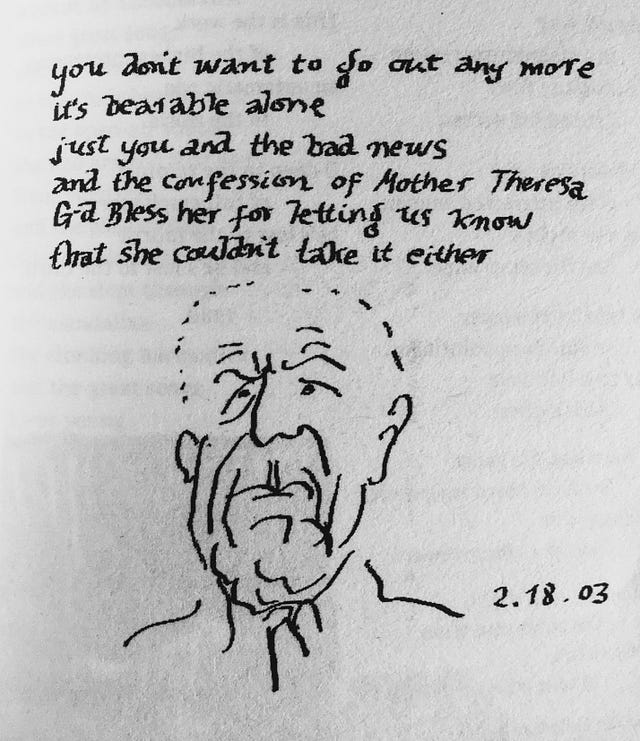 you don't want to go out any more
it's bearable alone
just you and the bad news
and the confession of Mother Theresa
G-d Bless her for letting us know
that she couldn't take it either
2.18.03